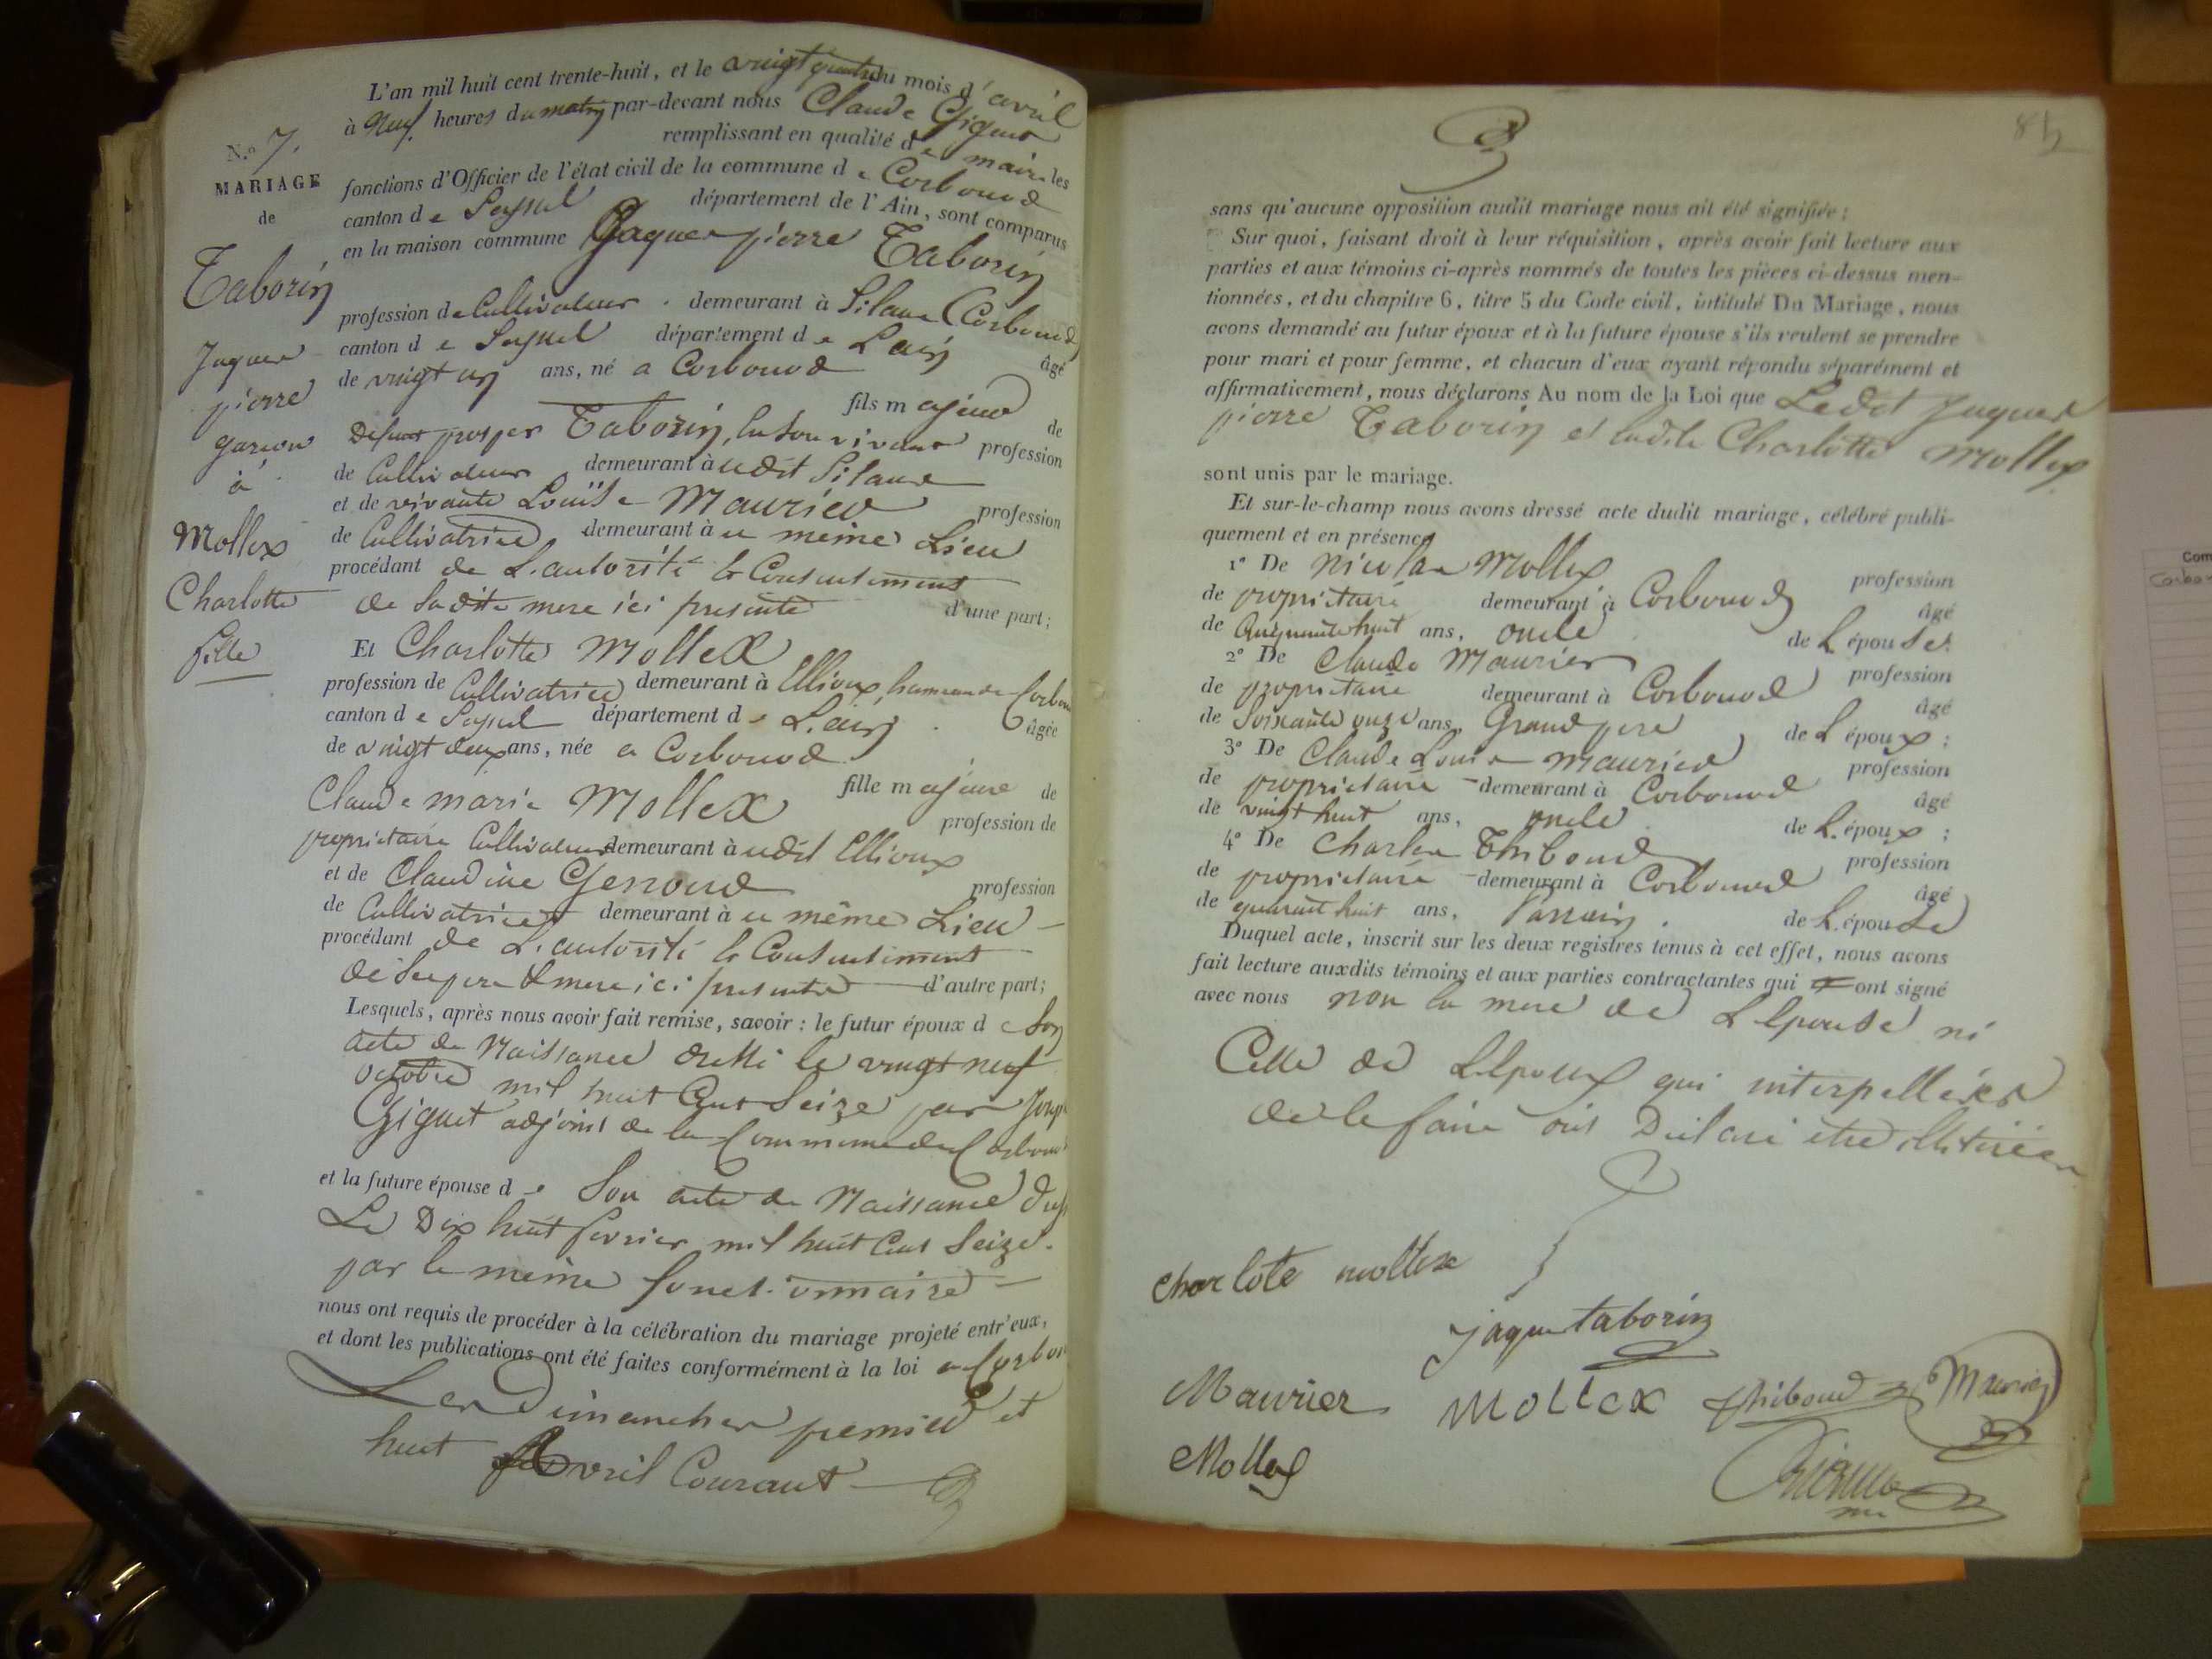 L'an mil huit cent trente-huit, et le vingt quatre du mois d'avril
à Neuf heures du matin par-devant nous Claude Giguet
remplissant en qualité de maire les
fonctions d'Officier de l'état civil de la commune de Corbonod
canton de Seyssel département de l'Ain, sont comparus
en la maison commune Jaques pierre Taborin
profession de Cultivateur demeurant à Silans (Corbonod)
canton de Seyssel département de L'ain âgé
de vingt un ans, né a Corbonod
fils majeur de
Defunt prosper Taborin, lu son vivant profession
de Cultivateur demeurant à udit Silans
et de vivante Louïse Maurier profession
de Cultivatrice demeurant à u même Lieu
procédant de L'autorité & Consentement
de Sadite mere ici presente d'une part;
Et Charlotte Mollex
profession de Cultivatrice demeurant à Ellioux hameau de Corbonod
canton de Seyssel département de L'ain âgée
de vingt deux ans, née a Corbonod
fille majeure de
Claude marie Mollex profession de
propriétaire Cultivateur demeurant à udit Ellioux
et de Claudine Genoud profession
de Cultivatrice demeurant à u même Lieu
procédant de L'autorité & Consentement
de Ses pere & mere ici presents d'autre part;
Lesquels, après nous avoir fait remise, savoir : le futur époux de Son
acte de Naissance dressé le vingt neuf
octobre mil huit Cent Seize par
Giguet adjoint de la Commune de Corbonod
et la future épouse de Son acte de Naissance
Le Dix huit fevrier mil huit Cent Seize
par le même fonctionnaire
nous ont requis de procéder à la célébration du mariage projeté entr'eux,
et dont les publications ont été faites conformément à la loi a Corbonod
Les Dimanches premier et
huit Avril Courant
N.º 7.
MARIAGE
de
Taborin
Jaques
pierre
garçon
à
Mollex
Charlotte
fille
85
sans qu'aucune opposition audit mariage nous ait été signifiée;
Sur quoi, faisant droit à leur réquisition, après avoir fait lecture aux
parties et aux témoins ci-après nommés de toutes les pièces ci-dessus men-
tionnées, et du chapitre 6, titre 5 du Code civil, intitulé Du Mariage, nous
avons demandé au futur époux et à la future épouse s'ils veulent se prendre
pour mari et pour femme, et chacun d'eux ayant répondu séparément et
affirmativement, nous déclarons Au nom de la Loi que Ledit Jaques
pierre Taborin et ladite Charlotte Mollex
sont unis par le mariage.
Et sur-le-champ nous avons dressé acte dudit mariage, célébré publi-
quement et en présence
1º De Nicolas Mollex profession
de propriétaire demeurant à Corbonod âgé
de Cinquante huit ans, oncle de L'épouse.
2º De Claude Maurier profession
de propriétaire demeurant à Corbonod âgé
de Soixante onze ans, Grand pere de L'époux;
3º De Claude Louis Maurier profession
de propriétaire demeurant à Corbonod âgé
de vingt huit ans, oncle de L'époux;
4º De Charles Thiboud profession
de propriétaire demeurant à Corbonod âgé
de quarante huit ans, Parrain de L'épouse
Duquel acte, inscrit sur les deux registres tenus à cet effet, nous avons
fait lecture auxdits témoins et aux parties contractantes qui ont signé
avec nous non la mere de L'épouse ni
Celle de L'époux qui interpellées
de le faire ont Déclaré etre illitérées
charlote mollex
jaque taborin
Maurier Mollex thiboud Maurier
Mollex
Giguet